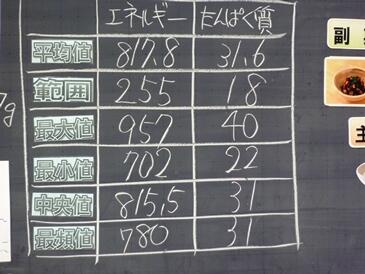 エネルギー たんぱく質
平均値 817.8 31.6
範囲 255 18
最大値 957 40
最小値 702 22
中央値 815.5 31
最頻値 780 31
副
主
g